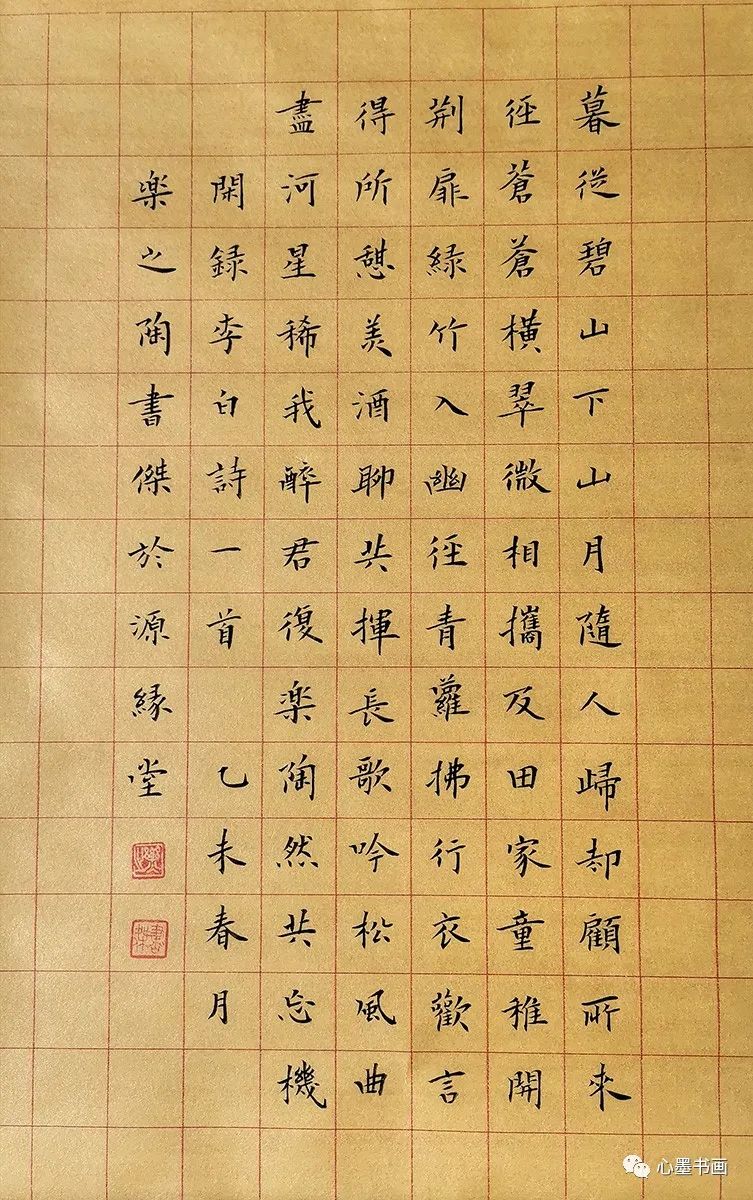 暮從碧山下山月隨人歸却顧所來
徑蒼蒼橫翠微相攜及田家童稚開
荆扉緑竹入幽徑青蘿拂行衣歡言
得所憩美酒聊共揮長歌吟松風曲
盡河星稀我醉君復楽陶然共忘機
閑録李白詩一首 乙未春月
楽之陶書傑於源縁堂
心墨书画